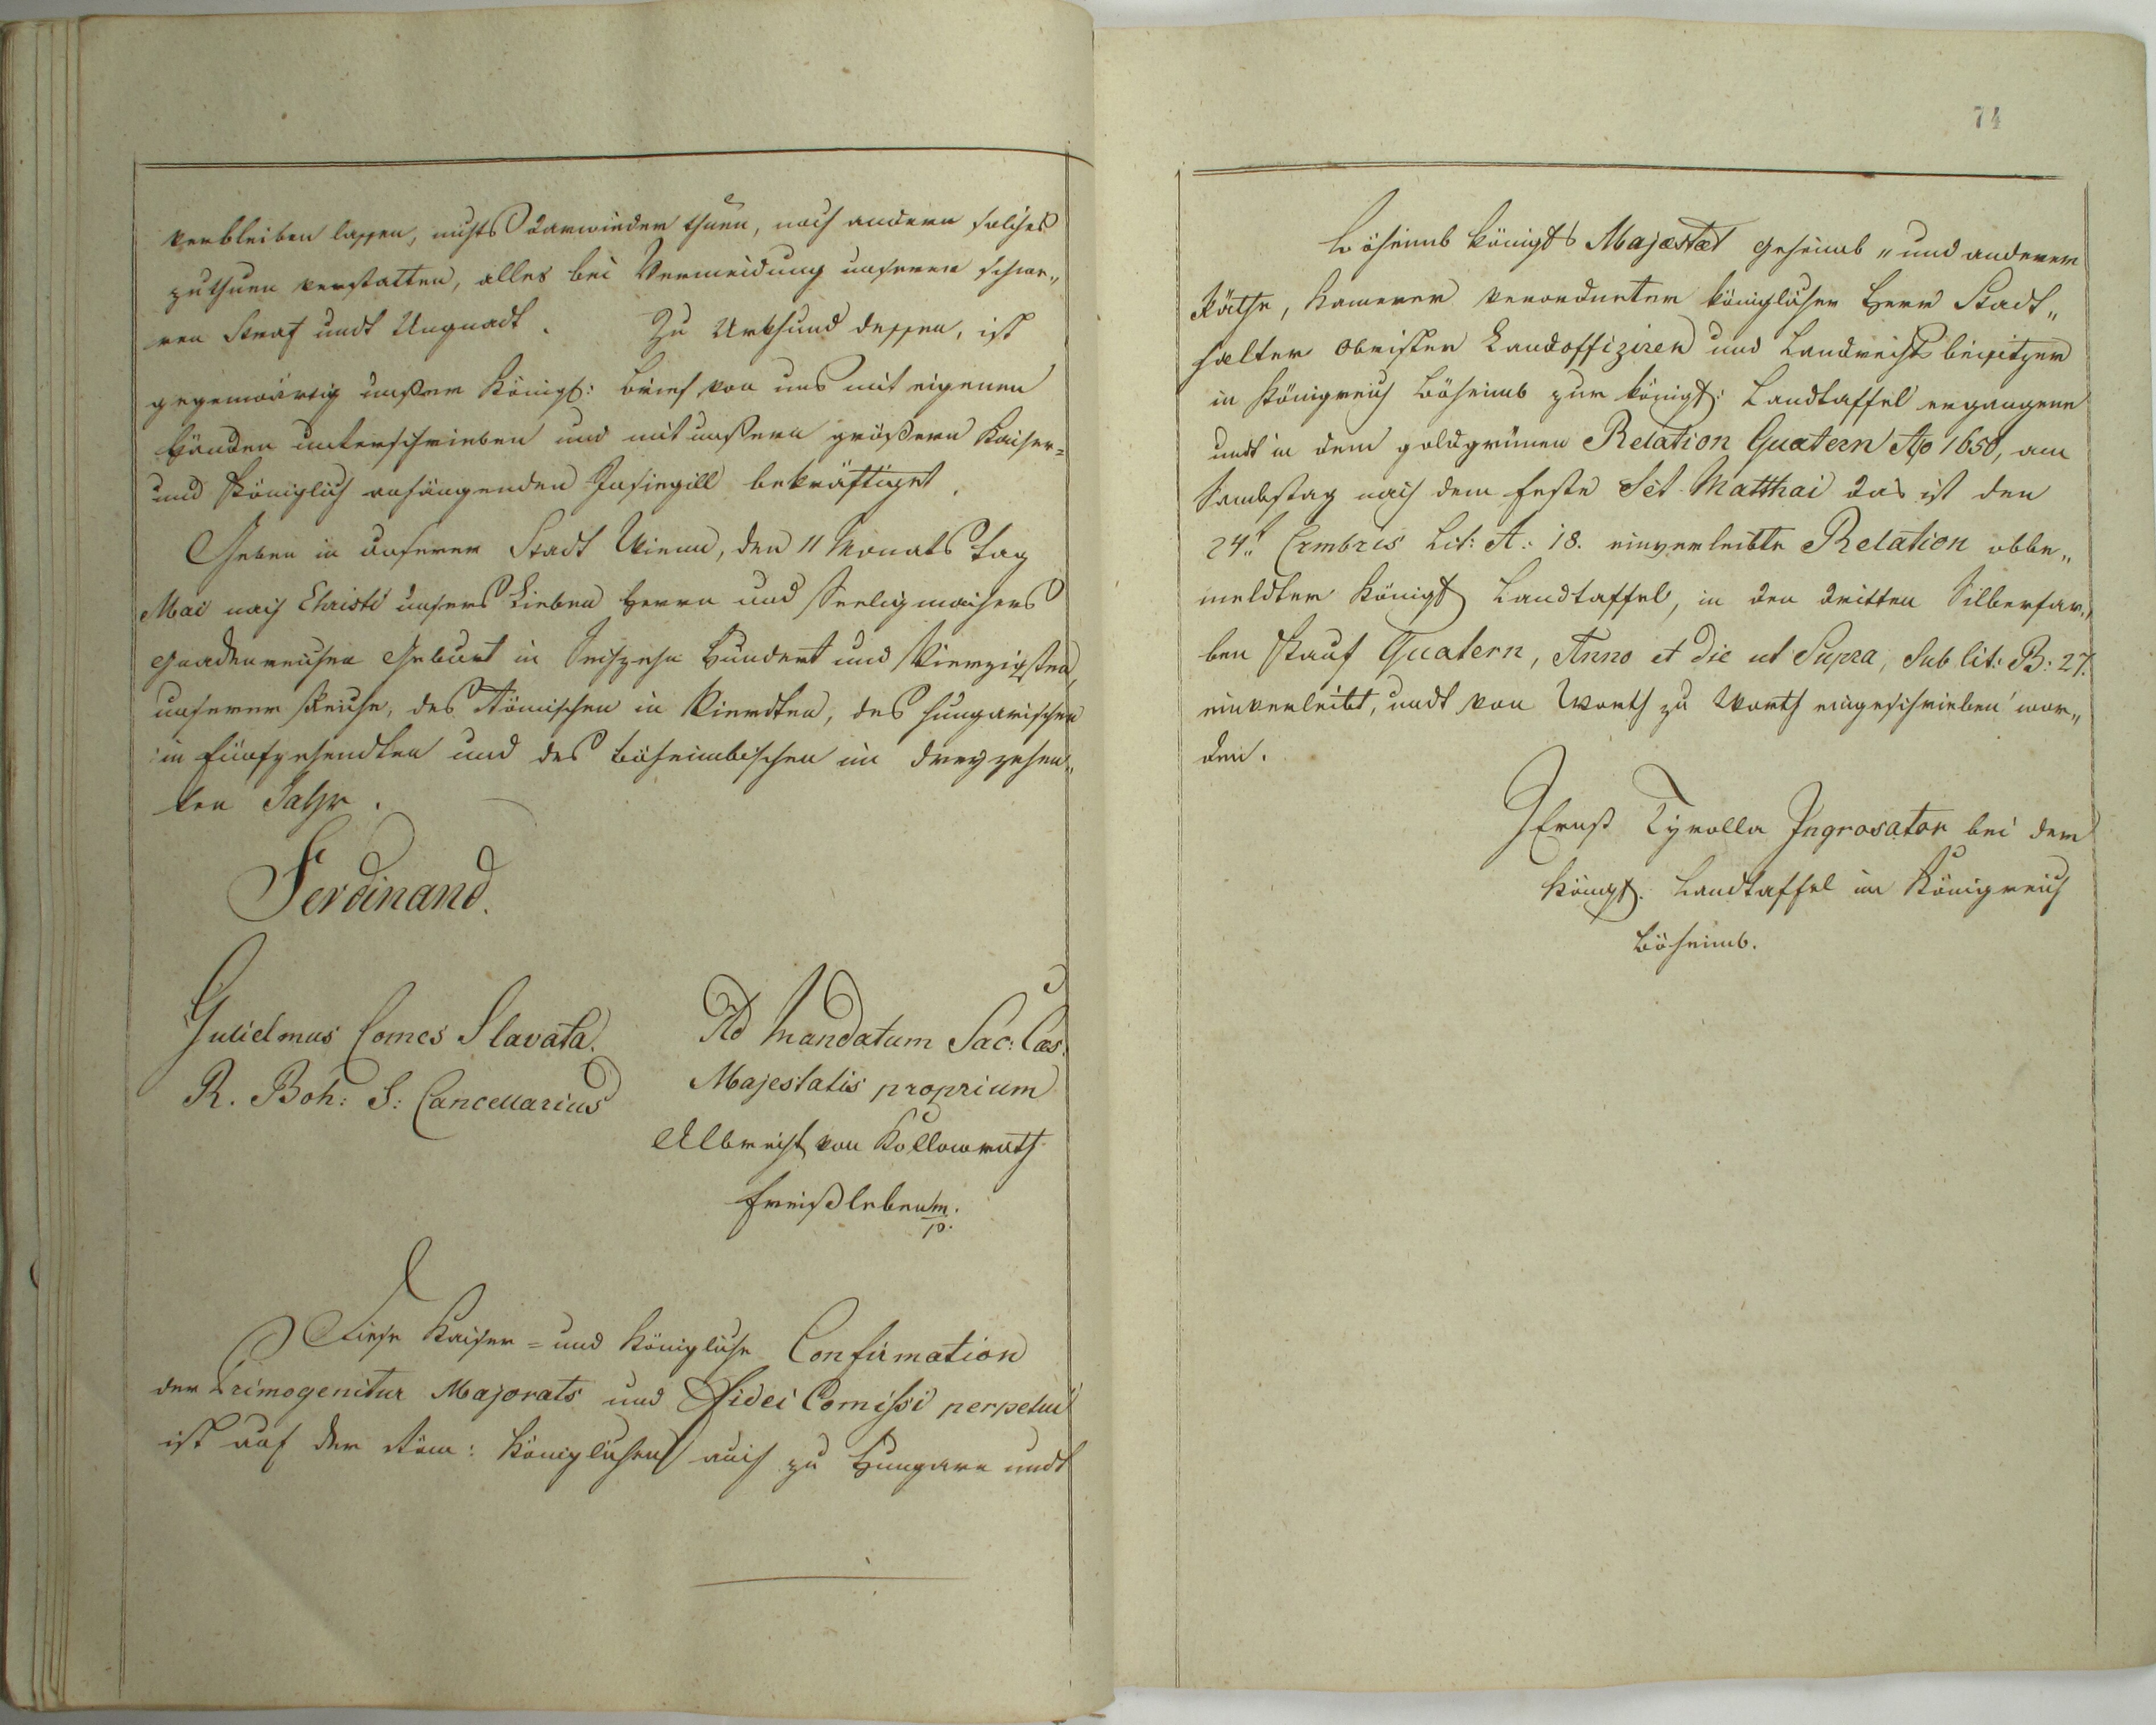 verbleiben lassen, nichts darwieder thuen, noch andern solches
zuthuen verstatten, alles bei Vermeidung unserer schwe„
ren Straf undt Ungnadt. Zu Urkhund dessen, ist
gegenwärtig unßer Königl: brief von uns mit eigenen
Händen unterschrieben und mit unßern größern Kaiser=
und Königlich anhängenden Insiegill bekräftiget.
Geben in unserer Stadt Wienn, den 11 Monats tag
Mai nach Christi unsers Lieben Herrn und Seeligmachers
gnadenreichen Geburt in Sechzehn Hundert und Vierzigsten,
unserer Reiche, des Römischen in Vierdten, des hungarischen
in fünfzehendten und des böheimbischen im dreyzehen„
ten Jahr.
Ferdinand.
Gulielmus Comes Slavata.
R. Boh: S: Cancellarius
Ad Mandatum Sac: Cæs:
Majestatis proprium
Albrecht von Kollowrath
Freißleben m.
p.
Diese Kaiser= und Königliche Confirmation
der Primogenitur Majorats und Fidei Comissi perpetui
ist auf der Röm: Königlichen auch zu Hungarn undt
74
Böheimb Königl Majestæt geheimb„ und anderer
Räthe, Kamerer verordneter königlicher Herr Stadt„
halter Obrister Landoffiziren und Landrechts beisitzer
in Königreich Böheimb zur königl: Landtaffel ergangene
undt in dem goldgrünen Relation Quatern Ao 1650, am
Sambstag nach dem feste Sct. Matthai das ist den
24t. Lit: A: 18. einverleibte Relation obbe„
meldter Königl Landtaffel, in den dritten Silberfar„
ben Kauf Quatern, Anno et die ut Supra, Sub lit: B: 27.
einverleibt, undt von Worth zu Worth eingeschrieben wor„
den.
Ernst Tyrolla Ingrosator bei der
Königl. Landtaffel im Königreich
Böheimb.